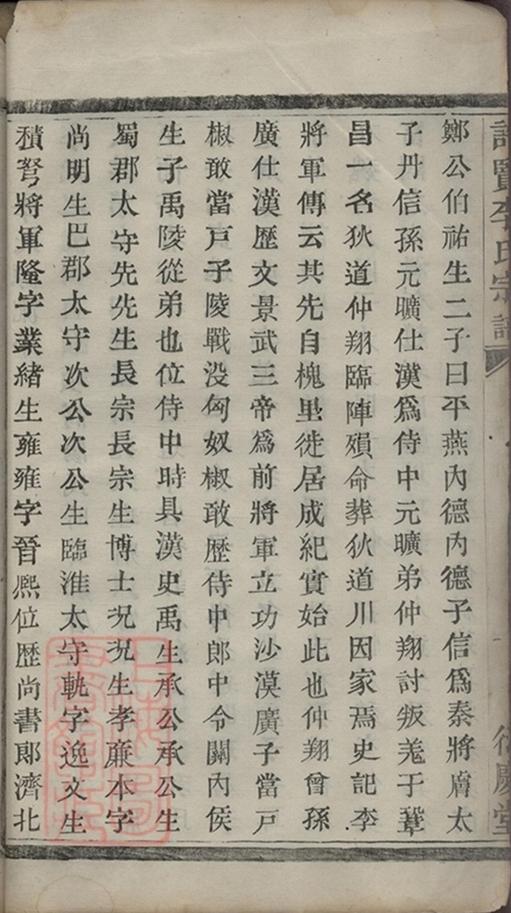 李氏宗譜
鄭公伯祐生二子曰平燕內德內德子信爲秦將膚太
子丹信孫元曠仕漢爲侍中元曠弟仲翔討叛羗于
昌一名狄道仲翔臨陣殞命葬狄道川因家焉史記李
將軍傳云其先自槐里徙居成紀實始此也仲翔曾孫
廣仕漢歷文景武三帝爲前將軍立功沙漠廣子當戸
椒敢當戸子陵戰没匈奴椒敢歷侍中郎中令關內侯
生子禹陵從弟也位侍中時具漢史禹生承公承公生
蜀郡太守先先生長宗長宗生博士况况生孝廉本字
尚明生巴郡太守次公次公生臨淮太守軌字逸文生
積弩將軍隆字業緒生雍雍字晉熈位歷尚書郎濟北
慶堂